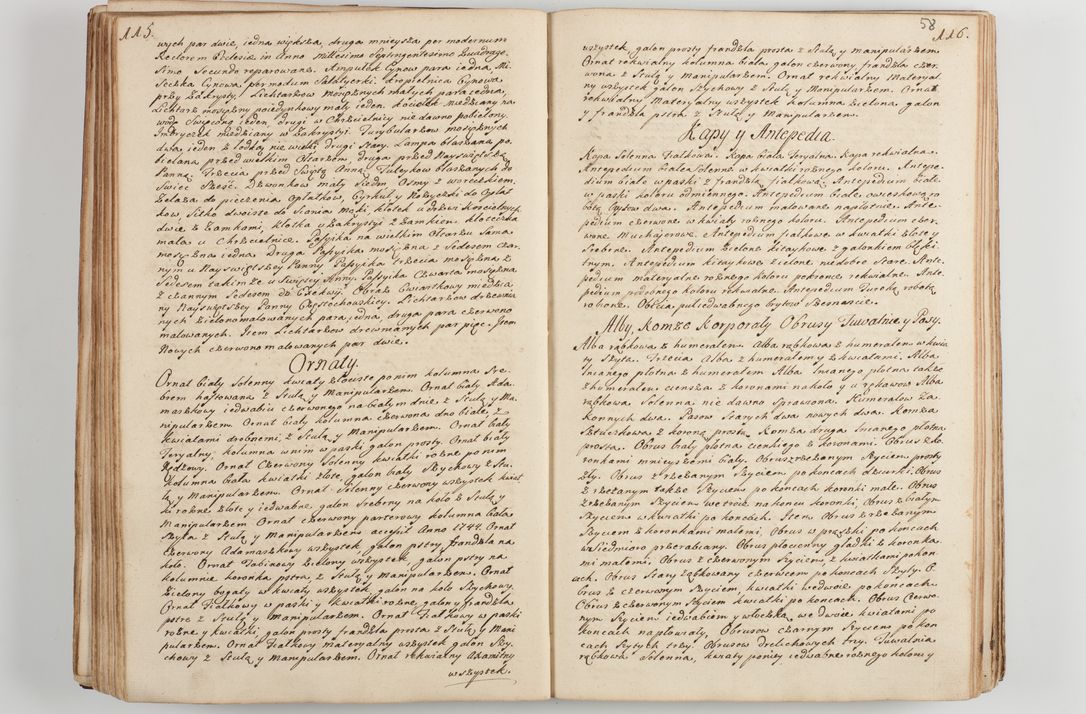 115.
wych par dwie, iedna większa, druga mnieysza per modernum
Rectorem Ecclesiæ in Anno Millesimo Septingentesimo Quadrage-
simo Secundo reparowana. Ampułek Cynowych para iedna, Mi-
seczka Cynowa, per modum Salaterki. Kropielnica Cynowa
przy Zakrysty. Lichtarzow mosiężnych małych para iedna,
Lichtarz mosiężny poiedynkowy mały ieden. Kociełek miedziany na
wodę Swięconą ieden, drugi w Chrzcielnicy nie dawno pobielony.
Imbryczek miedziany w Zakrystyi. Turybularzow mosiężnych
dwa, ieden z Łodką nie wielki, drugi Stary. Lampa blaszana po-
bielana przed wielkim Ołtarzem, druga przed Nayswiętszą
Panną, Trzecia przed Swiętą Anną. Tuleykow blaszanych do
Swiec Sześć. Dzwonkow mały ieden Osmy z woreczkiem.
Zelaza do pieczenia Opłatkow, Cyrkuł y Nożyczki do Opłat-
kow, Sitko dwoiste do Siania Mąki, Kłotek u drzwi Koscielnych
dwie, z Zamkami, Kłotka u Zakrystyi z Zamkiem. Kłoteczka
mała u Chrzcielnice. Passyika na wielkim Ołtarzu Sama
mosiężna iedna. Druga Passyika mosiężna z Sedesem czar-
nym u Nayswiętszey Panny. Passyika trzecia mosiężna z
Sedesem takimże u Swiętey Anny. Passyika Czwarta mosiężna
z czarnym Sedesem do Exekwii. Obraz Cwiartkowy miedzia-
ny Nayswiętszey Panny Częstochowskiey. Lichtarzow drzewnia-
nych Zielono malowanych para iedna, druga para czerwono
malowanych. Item Lichtarzow drewnianych par pięć. Item
Nowych czerwono malowanych par dwie.
Ornaty.
Ornat biały Solenny kwiaty złociste po nim kolumna Sre-
brem haftowana z Stułą y Manipularzem. Ornat biały Ada-
maszkowy iedwabiu czerwonego na białym dnie, z Stułą y Ma-
nipularzem. Ornat biały kolumna czerwona dno białe, z
kwiatami drobnemi, z Stułą y Manipularzem. Ornat biały
Feryalny, kolumna w nim w paski galon prosty. Ornat biały
Rędzowy. Ornat Czerwony Solenny kwiatki rożne po nim
kolumna biała kwiatki złote, galon biały Szychowy z Stu-
łą y Manipularzem. Ornat Solenny czerwony wszystek kwiat-
ki rożne złote y iedwabne, galon Srebrny na koło z Stułą y
Manipularzem. Ornat czerwony parterowy kolumna biała
Szyta z Stułą y Manipularzem accessit Anno 1744. Ornat
Czerwony Adamaszkowy wszystek, galon pstry, frandzla na
koło. Ornat Tabinowy Zielony wszystek galon pstry na
kolumnie koronka pstra, z Stułą y Manipularzem. Ornat
Zielony bogaty w kwiaty wszystek, galon na koło Szychowy.
Ornat Fiałkowy w paski y kwiatki rożne, galon y frandzla
pstre z Stułą y Manipularzem. Ornat Fiałkowy w paski
rożne y kwiatki, galon prosty frandzla prosta z Stułą y Mani-
pularzem. Ornat Fiałkowy materyalny wszystek galon Szy-
chowy z Stułą y Manipularzem. Ornat rekwialny Axamitny
wszystek.
58
116.
wszystek, galon prosty frandzla prosta z Stułą y manipularzem.
Ornat rekwialny kolumna biała, galon czerwony, frandzla czer-
wona z Stułą y Manipularzem. Ornat rekwialny Materyal-
ny wszystek galon Szychowy z Stułą y Manipularzem. Ornat
rekwialny Materyalny wszystek kolumna Zielona, galon
y frandzla pstra. z Stułą y Manipularzem.
Kapy y Antepedia.
Kapa Solenna Fiałkowa. Kapa biała Feryalna. Kapa rekwialna.
Antepedium białe Solenne w kwiatki rożnego koloru. Antepe-
dium białe w paski z frandzlą fiałkową. Antepedium białe
w paski koloru odmiennego. Antepedium białe, rweckową ro-
botą brytow dwa. Antepedium malowane na płotnie. Ante-
pedium czerwone w kwiaty rożnego koloru. Antepedium czer-
wone Muchajerowe. Antepedium fiałkowe, w kwiatki złote y
Srebrne. Antepedium Zielone Kitaykowe z galonkiem błęki-
tnym. Antepedium kitaykowe Zielone nadobre Stare. Ante-
pedium materyalne rożnego koloru pstrone rekwialne. Ante-
pedium podobnego koloru rekwialne. Antepedium Turecką robotą
robione. Obicia pułiedwabnego brytow Szesnascie.
Alby, Komże Korporały Obrusy Tuwalnie y Pasy.
Alba rąbkowa z humerałem. Alba rąbkowa z humerałem w kwia-
ty Szyta. Trzecia Alba z humerałem y z kwiatami. Alba
lnianego płotna z humerałem. Alba lnianego płotna także
z humerałem cieńsza z koronami na koło y u rękawow. Alba
rąbkowa Solenna nie dawno Sprawiona. Humerałow Za-
konnych dwa. Pasow Starych dwa nowych dwa. Komża
Sztuczkowa z koroną prostą. Komża druga lnianego płotna
prosta. Obrus biały płotna cienkiego z koronami. Obrus z ko-
ronkami mnieyszemi biały. Obrus z rżezanym Szyciem prosty
zły. Obrus z rżezanym Szyciem po koncach dziurki. Obrus
z rżezanym także Szyciem po koncach koronki małe. Obrus
z rżezanym Szyciem we srzod na koncu koronki. Obrus z białym
Szyciem w kwiatki po koncach. Item Obrus z rżezanym
Szyciem z koronkami małemi, Obrus w prążki po koncach
w Siedmioro przerabiany. Obrus płocienny gładki z koronka-
mi małemi. Obrus z czerwonym Szyciem, z kwiatkami po kon-
cach. Obrus Stary ząbkowany czerwcem po koncach Szyty. O-
brus z czerwonym Szyciem, kwiatki we dwoie po koncach.
Obrus z czerwonym Szyciem kwiatki po koncach. Obrus Czerwo-
nym Szyciem iedwabiem y włoczką we dwoie, kwiatami po
koncach na płowiały, Obrusow czarnym Szyciem po kon-
cach Szytych trzy. Obrusow Drelichowych trzy. Tuwalnia
rąbkowa Solenna, kwiaty poniey iedwabne rożnego koloru y